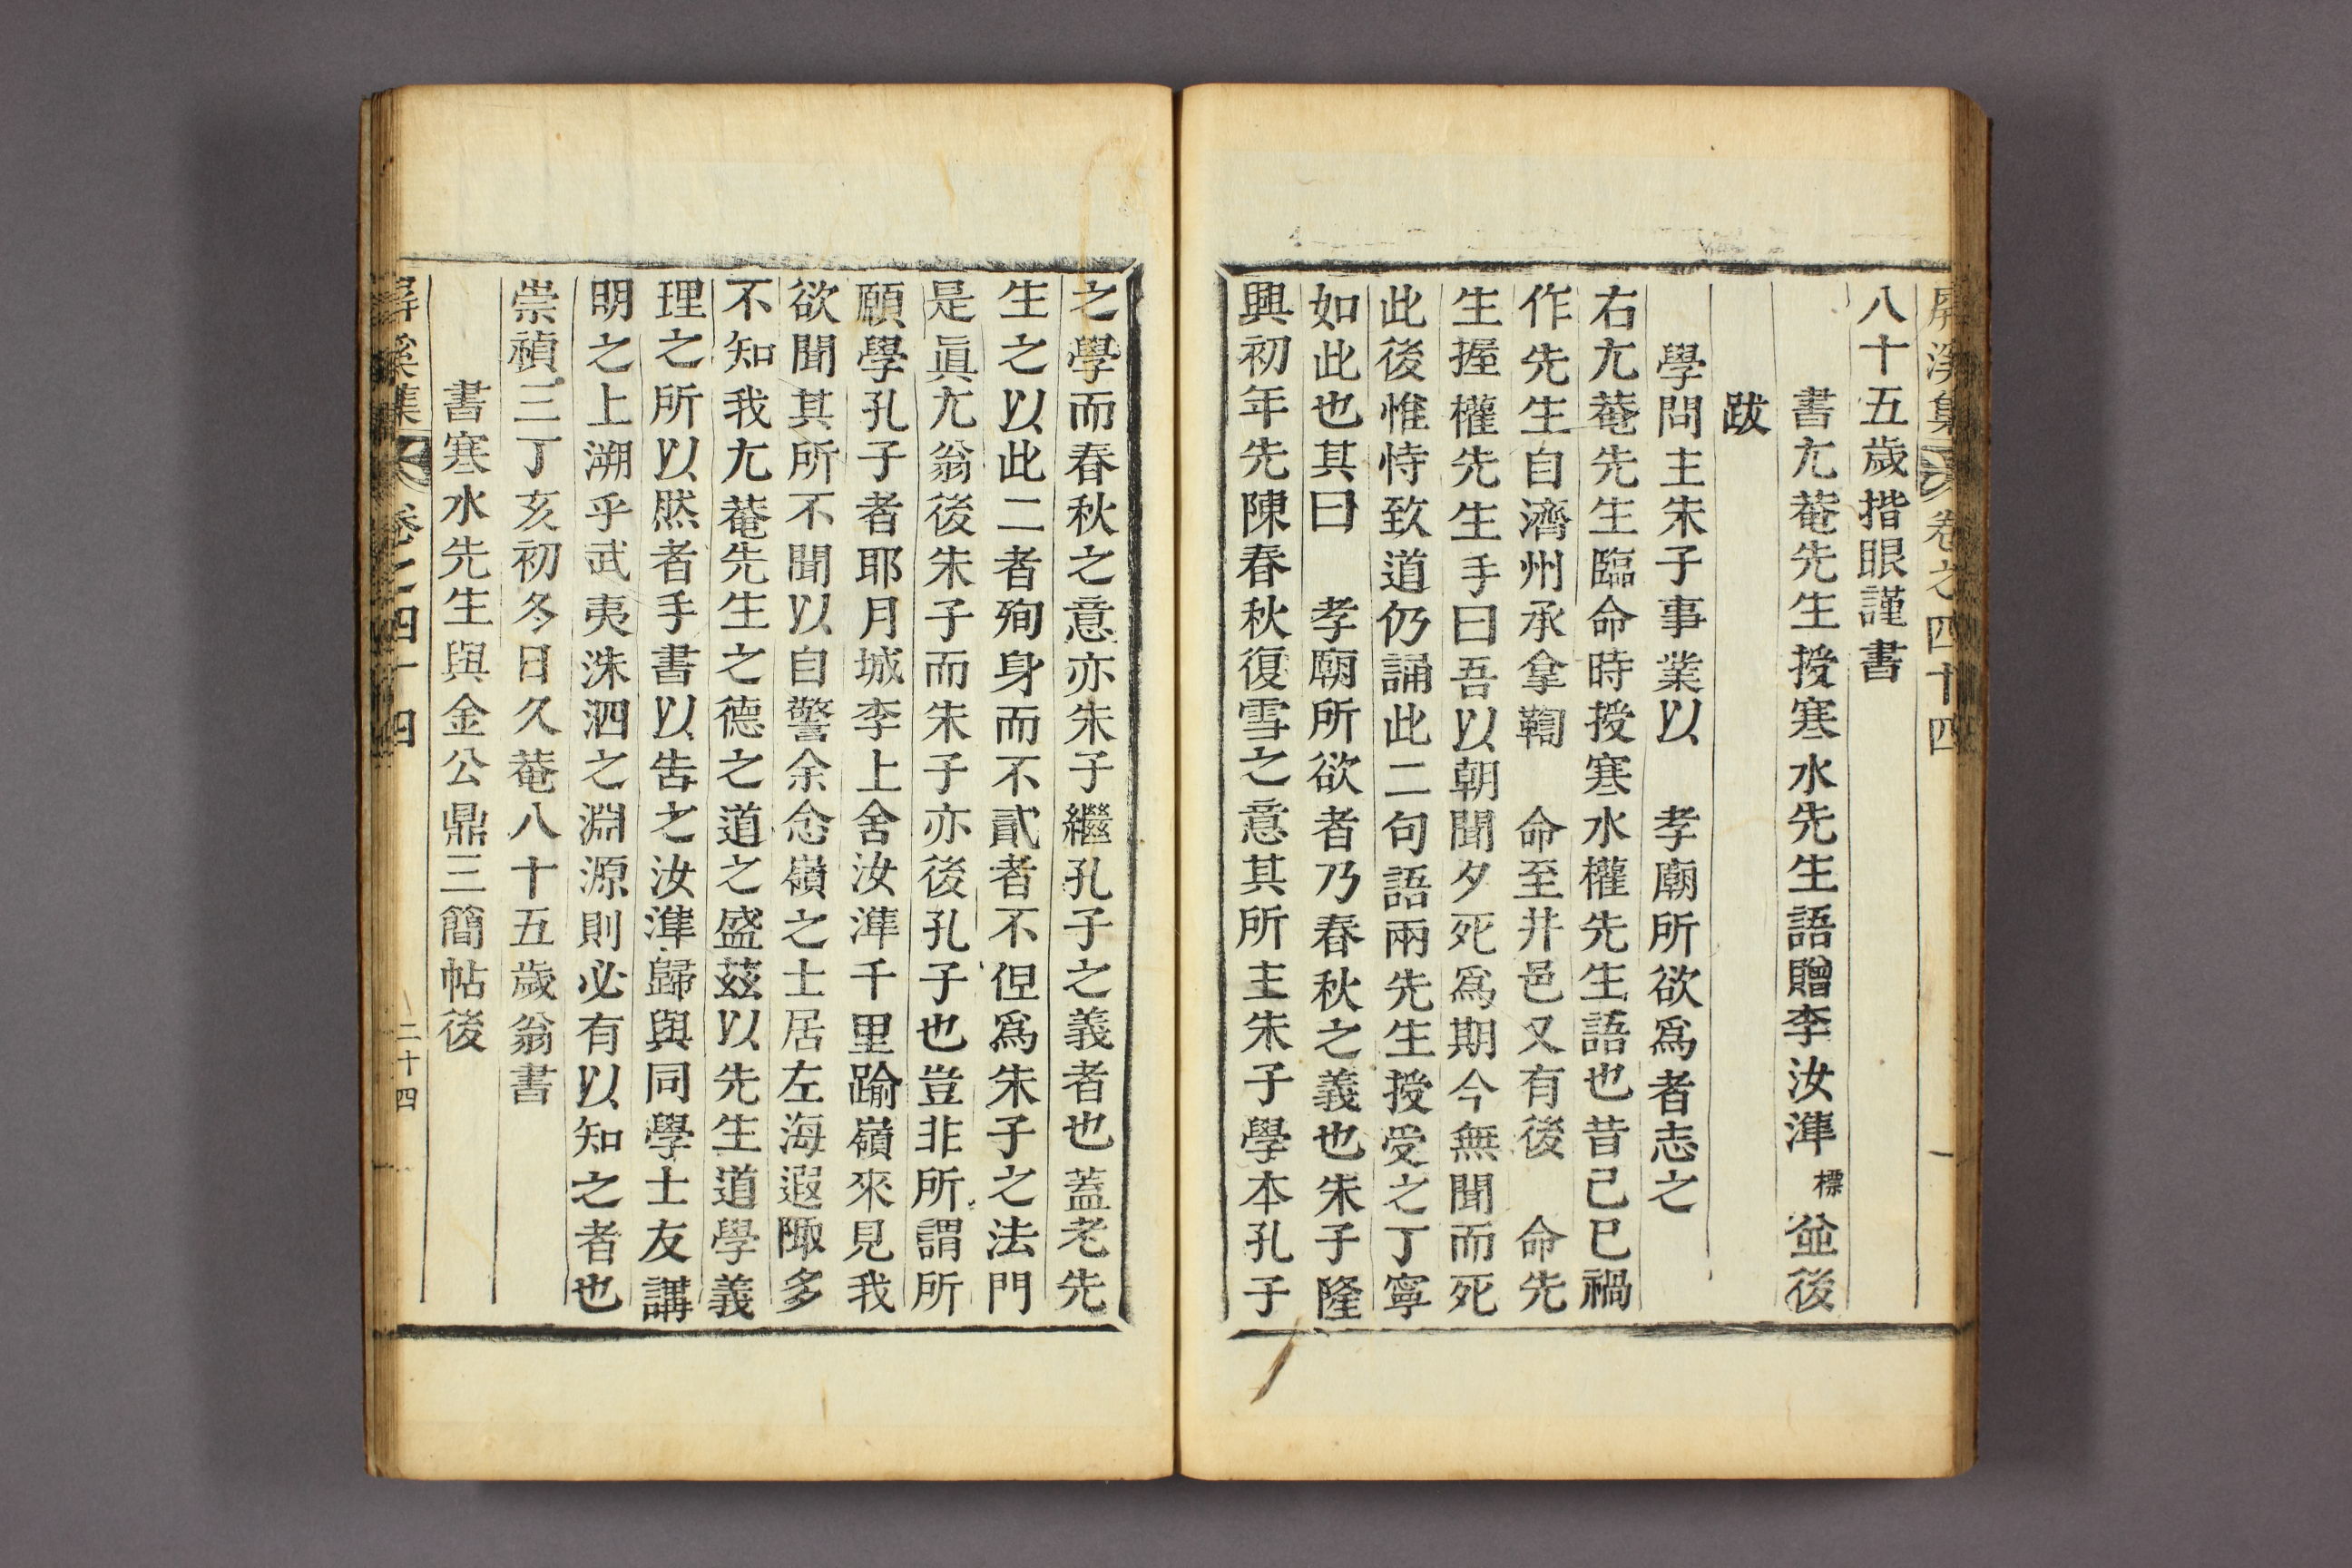 屛溪集 卷之四十四
八十五歲揩眼謹書
書尤菴先生授寒水先生語贈李汝準 標 㕣後
跋
學問主朱子事業以 孝廟所欲爲者志之
右尤菴先生臨命時授寒水權先生語也昔己巳禍
作先生自濟州承拿鞫 命至井邑又有後 命先
生握權先生手曰吾以朝聞夕死爲期今無聞而死
此後惟恃致道仍誦此二句語兩先生授受之丁寧
如此也其曰 孝廟所欲者乃春秋之義也朱子隆
興初年先陳春秋復雪之意其所主朱子學本孔子
之學而春秋之意亦朱子繼孔子之義者也蓋老先
生之以此二者殉身而不貳者不但爲朱子之法門
是眞尤翁後朱子而朱子亦後孔子也豈非所謂所
願學孔子者耶月城李上舍汝準千里踰嶺來見我
欲聞其所不聞以自警余念嶺之士居左海遐陬多
不知我尤菴先生之德之道之盛茲以先生道學義
理之所以然者手書以告之汝準歸與同學士友講
明之上溯乎武夷洙泗之淵源則必有以知之者也
崇禎三丁亥初冬日久菴八十五歲翁書
書寒水先生與金公鼎三簡帖後
屛溪集 卷之四十四 二十四